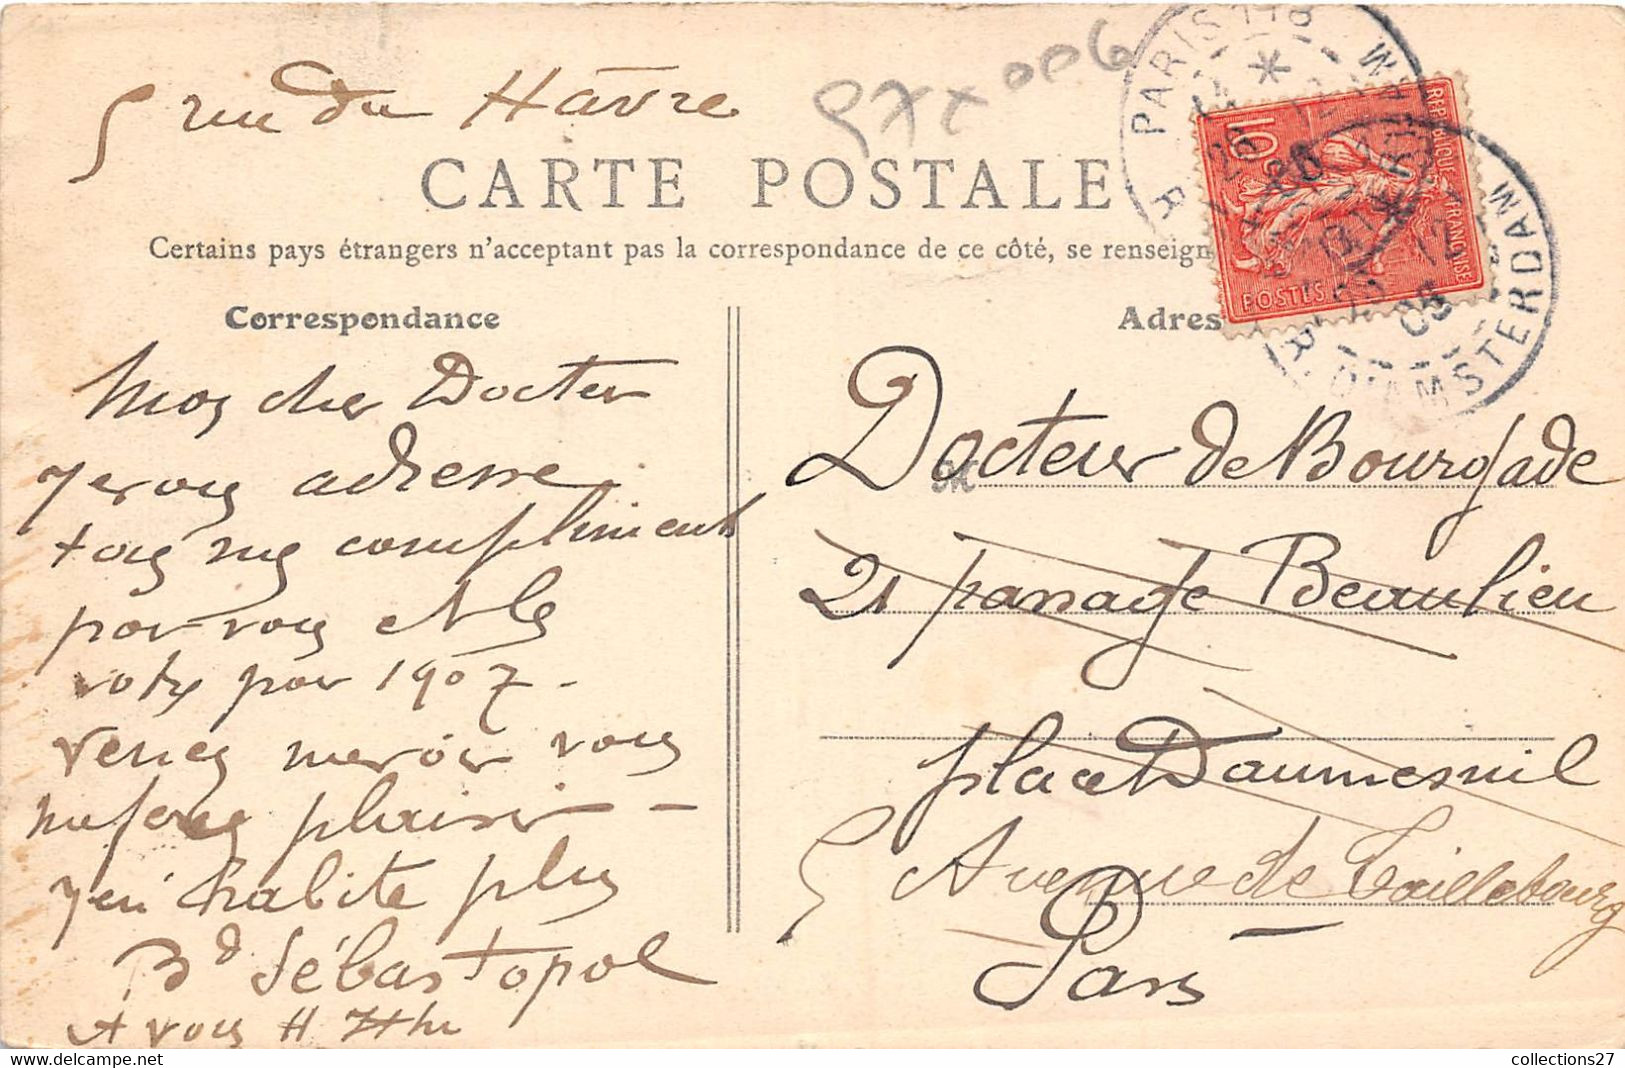 5 rue du Hâvre
CARTE POSTALE
Certains pays étrangers n'acceptant pas la correspondance de ce côté, se renseign
Correspondance
Adres
PARIS 118
R. D'AMSTERDAM
REPUBLIQUE FRANÇAISE
10 c
POSTES
Mon cher Docteur
Je vous adresse
tous mes compliments
pour vous et les
votres pour 1907 -
Venez me voir vous
me ferez plaisir -
Je n'habite plus
Bd Sébastopol
A vous
Docteur de Bourgade
21 passage Beaulieu
place Daumesnil
5 Avenue de Taillebourg
Paris
collections27